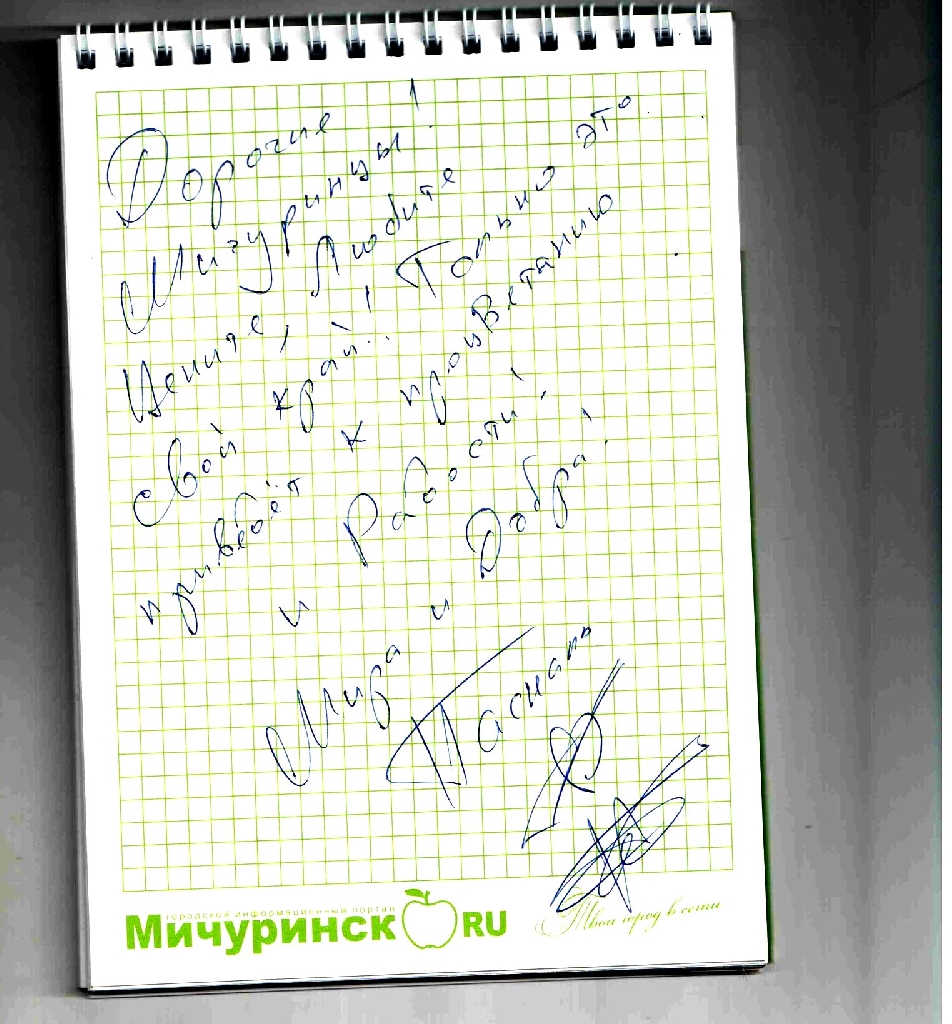 Дорогие
Мичуринцы!
Цените, Любите
свой край! Только это
приведёт к процветанию
и Радости!
Мира и Добра!
городской информационный портал
Мичуринск RU
Твой город в сети